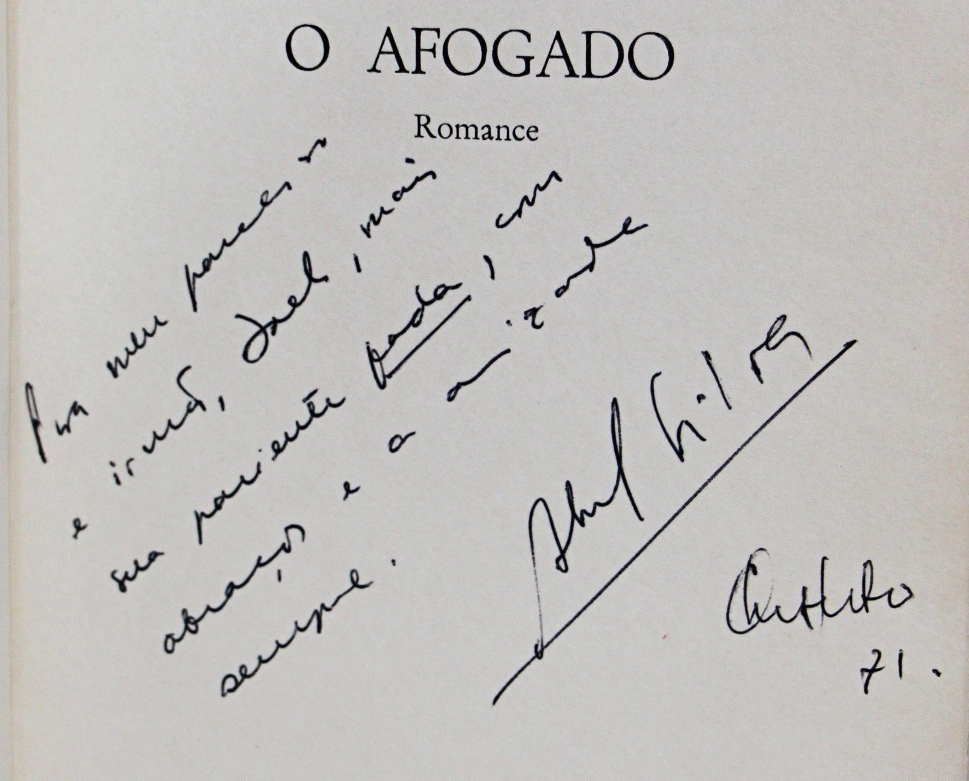 O AFOGADO
Romance
Pra meu parceiro
e irmão, Joel, mais
sua paciente , com
abraços e a amizade
sempre.
Abel Silva
Outubro
71.